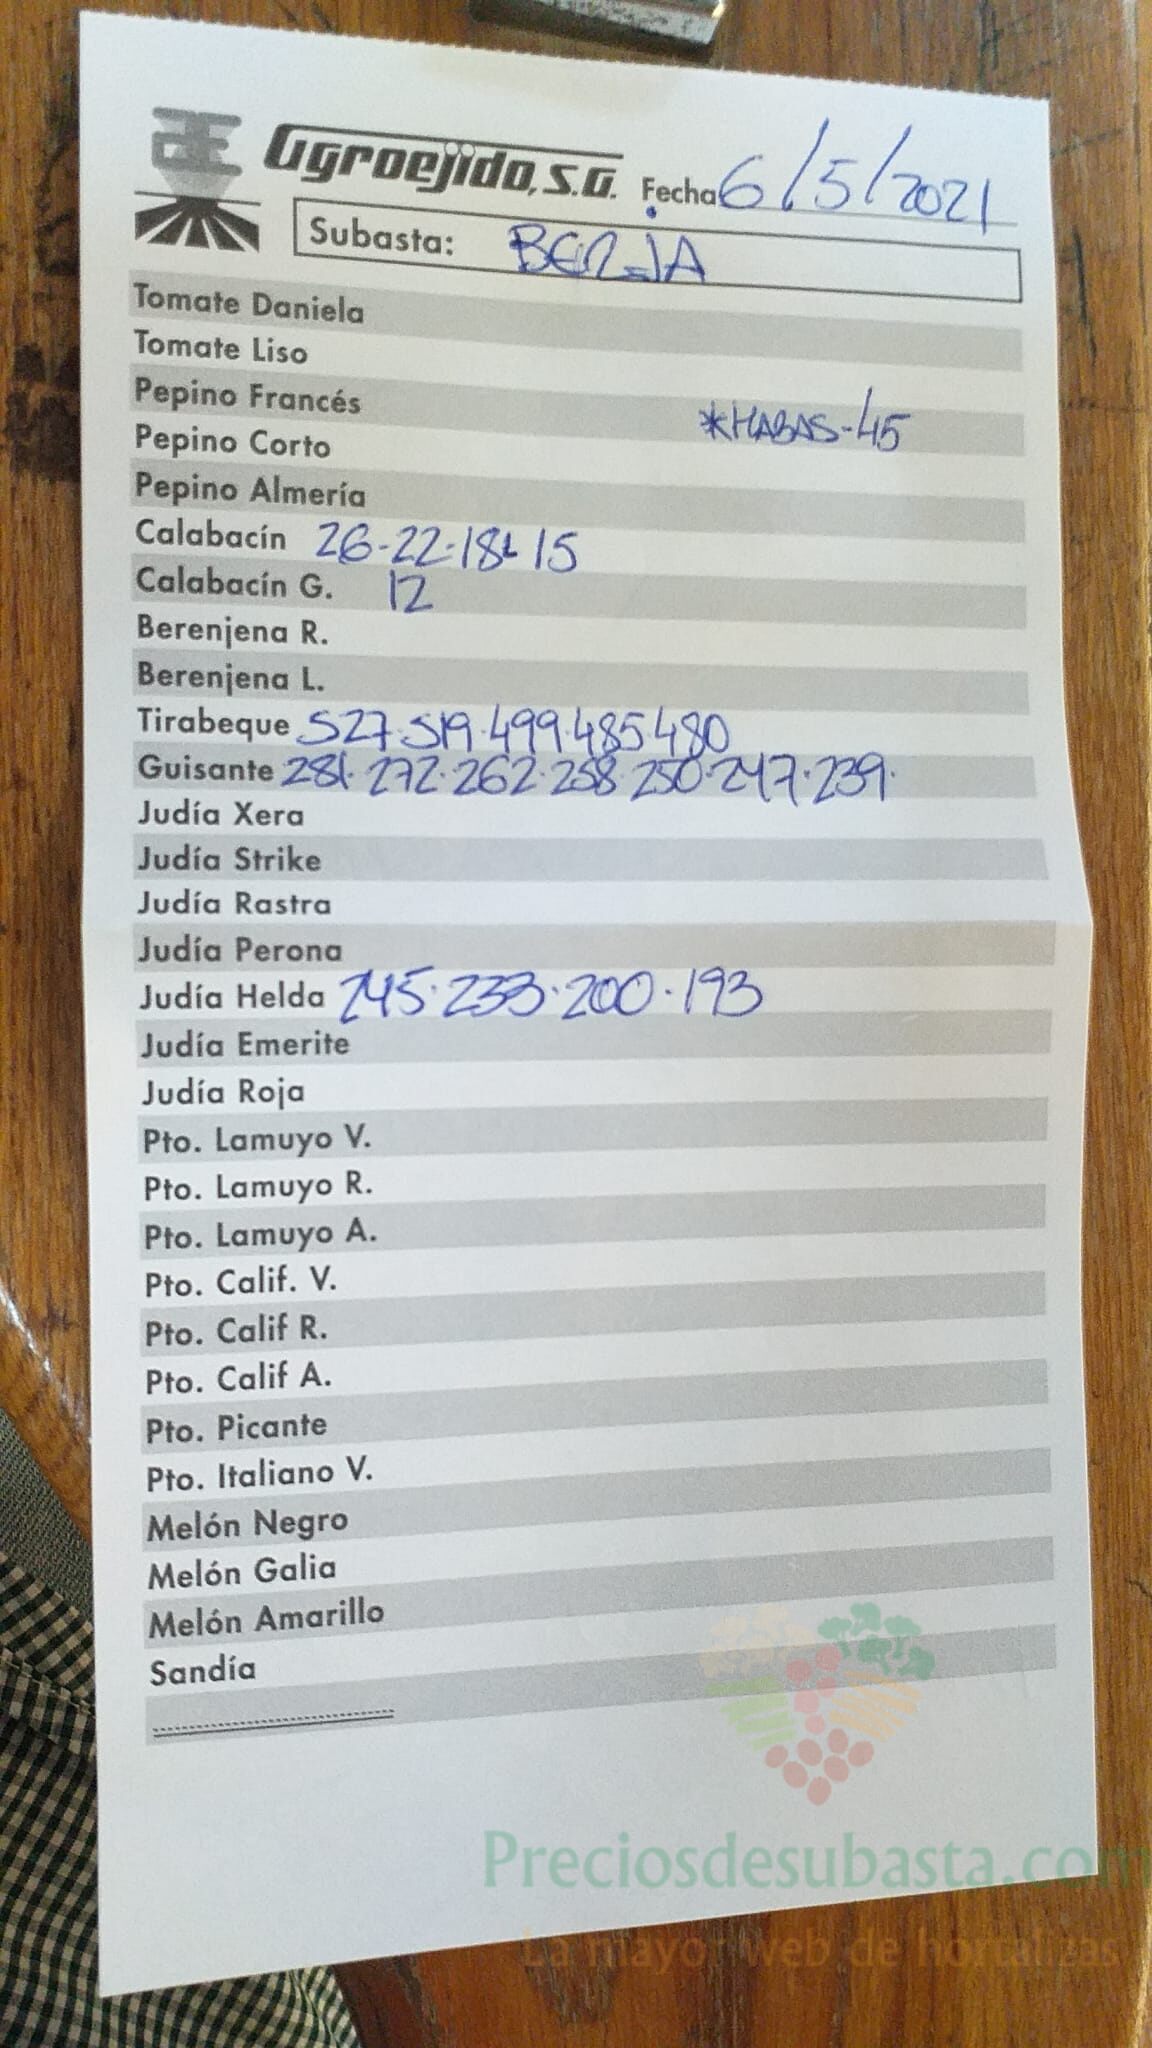 Agroejido, S.A. Fecha 6/5/2021
Subasta: BERJA
Tomate Daniela
Tomate Liso
Pepino Francés
*HABAS-45
Pepino Corto
Pepino Almería
Calabacín 26-22-18-15
Calabacín G. 12
Berenjena R.
Berenjena L.
Tirabeque 527.519.499.485.480
Guisante 281.272.262.258.250.247.239.
Judía Xera
Judía Strike
Judía Rastra
Judía Perona
Judía Helda 245.233.200.193
Judía Emerite
Judía Roja
Pto. Lamuyo V.
Pto. Lamuyo R.
Pto. Lamuyo A.
Pto. Calif. V.
Pto. Calif R.
Pto. Calif A.
Pto. Picante
Pto. Italiano V.
Melón Negro
Melón Galia
Melón Amarillo
Sandía
Preciosdesubasta.com
La mayor web de hortalizas